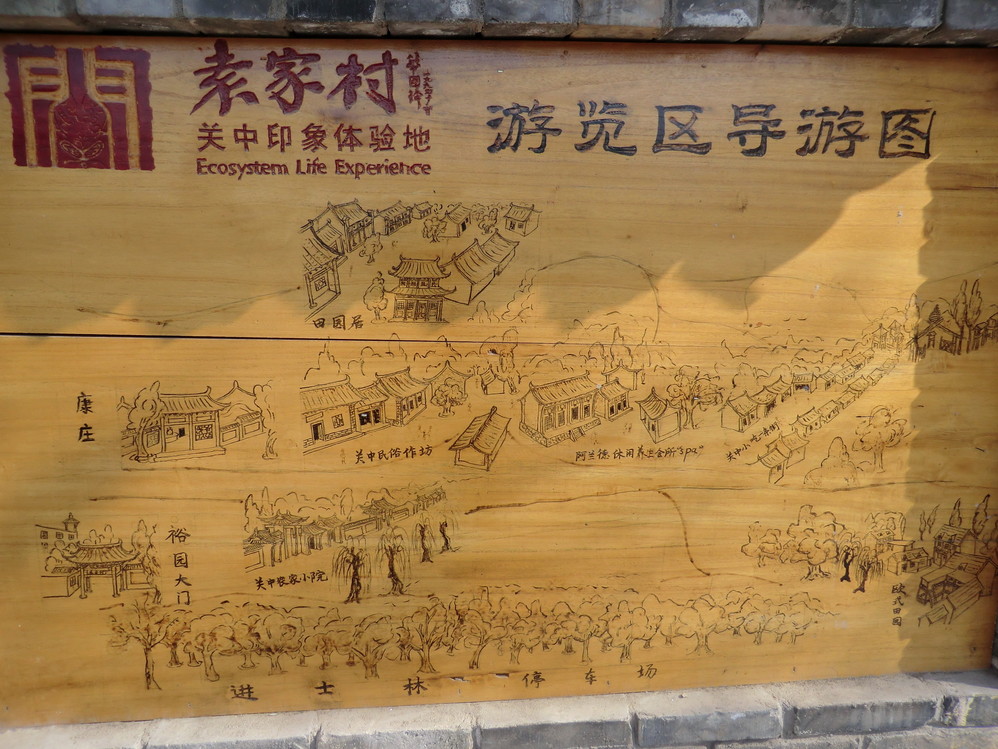 袁家村
关中印象体验地
Ecosystem Life Experience
游览区导游图
田园居
康庄
关中民俗作坊
阿兰德休闲养生会所"spa"
关中小吃一条街
裕园大门
关中农家小院
欧式田园
进士林 停车场